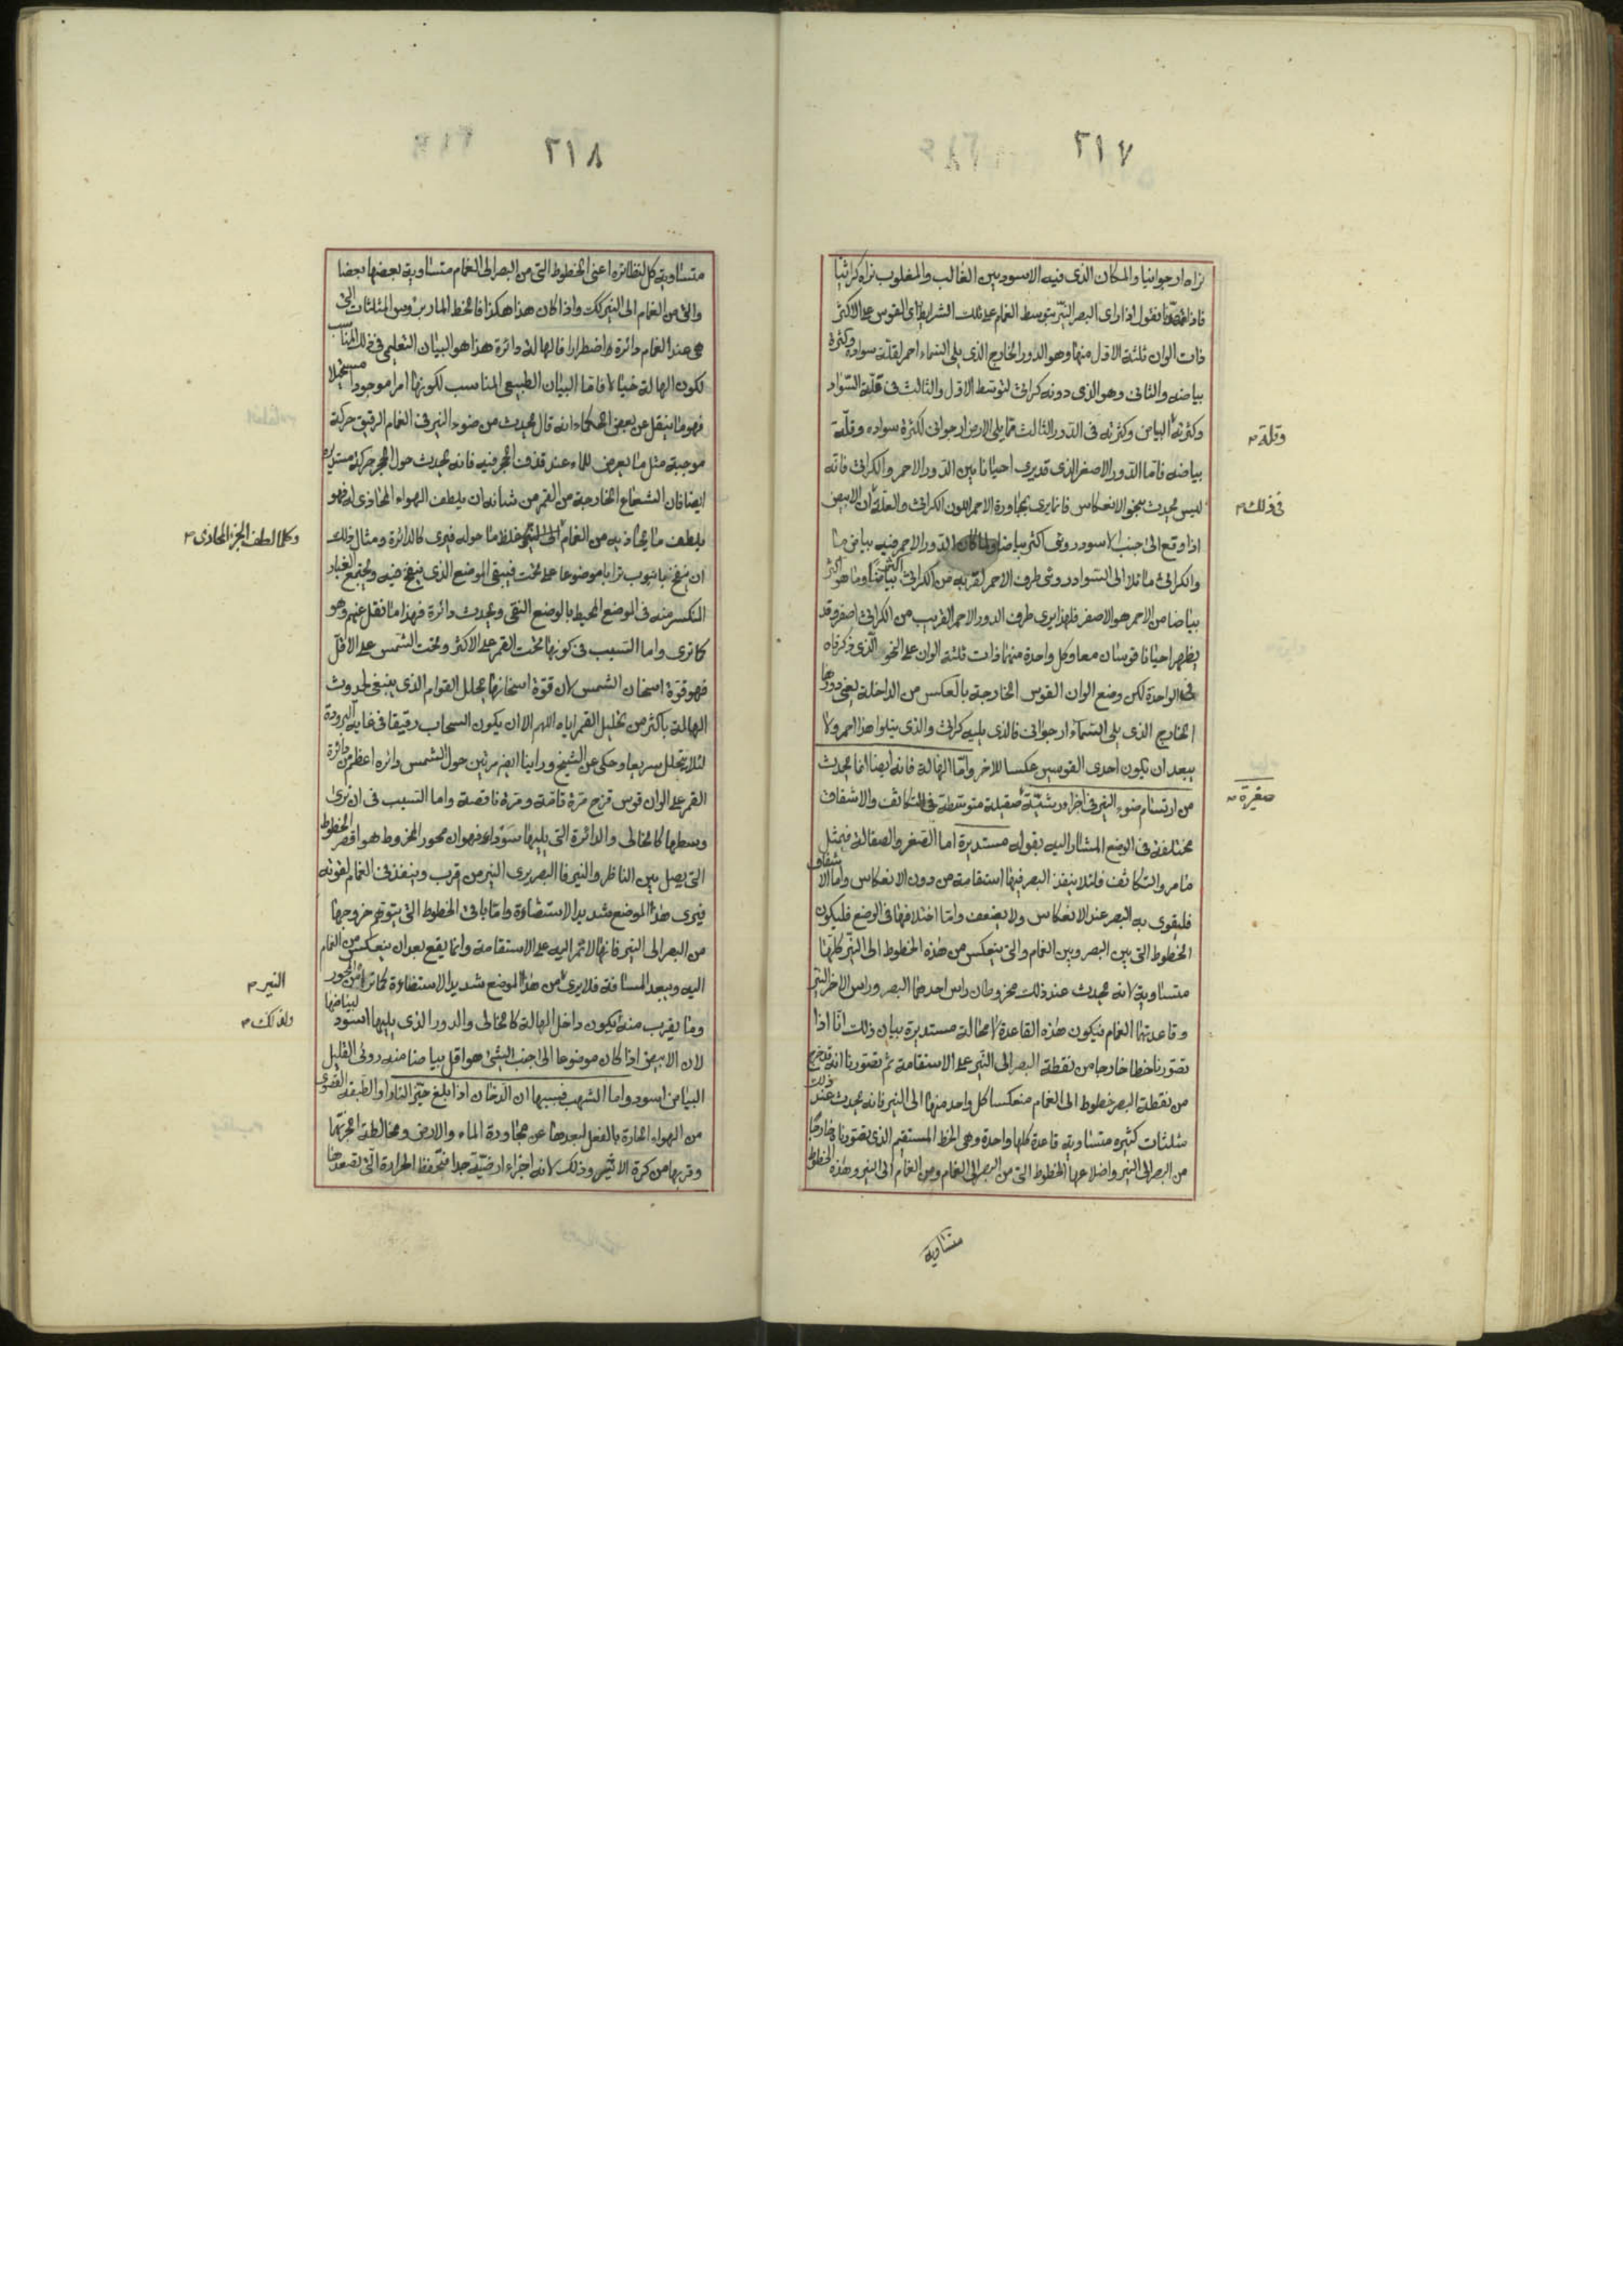 ٢١٧
نراه ارجوانيا والمكان الذى فيه الاسود بين الغالب والمغلوب نراه كراثيا
فنقول اذا راى البصر النير بتوسط الغمام على تلك الشرايط راى القوس على الاكثر
ذات الوان ثلثة الاول منها وهو الدور الخارج الذى يلى السماء احمر لقلة سواده وكثرة
بياضه والثانى وهو الذى دونه كراثى لتوسط الاول والثالث فى قلة السواد
وكثرته البياض وكثرته فى الدور الثالث مما يلى الارض ارجوانى لكثرة سواده وقلة
بياضه فاما الدور الاصفر الذى قد يرى احيانا بين الدور الاحمر والكراثى فانه
ليس يحدث بنحو الانعكاس فانما يرى بمجاورة الاحمر اللون الكراثى والعلة ان الابيض
اذا وقع الى جنب الاسود روئى اكثر بياضا ولما كان الدور الاحمر فيه بياض ما
والكراثى مائلا الى السواد روئى طرف الاحمر لقربه من الكراثى اكثر بياضا وما هو اكثر
بياضا من الاحمر هو الاصفر فلهذا يرى طرف الدور الاحمر القريب من الكراثى اصفر وقد
يظهر احيانا قوسان معا وكل واحدة منهما ذات ثلثة الوان على النحو الذى ذكرناه
فى الواحدة لكن وضع الوان القوس الخارجة بالعكس من الداخلة يعنى دورها
الخارج الذى يلى السماء ارجوانى فالذى يليه كراثى والذى يتلوا هذا احمر ولا
يبعد ان يكون احدى القوسين عكسا للاخر واما الهالة فانه ايضا انما يحدث
من ارتسام ضوء النير فى اجزاء رشية صقيلة متوسطة فى التكاثف والاشفاف
مختلفة فى الوضع المشار اليه بقوله مستديرة اما الصغر والصقالة فبمثل
ما مر والتكاثف فلئلا ينفذ البصر فيها استقامة من دون الانعكاس واما الاشفاف
فليقوى به البصر عند الانعكاس ولا يضعف واما اختلافها فى الوضع فليكون
الخطوط التى بين البصر وبين الغمام والتى ينعكس من هذه الخطوط الى النير كلها
متساوية لانه يحدث عند ذلك مخروطان راس احدهما البصر وراس الاخر النير
وقاعدتهما الغمام فيكون هذه القاعدة لا محالة مستديرة بيان ذلك انا اذا
تصورنا خطا خارجا من نقطة البصر الى النير على الاستقامة ثم تصورنا انه قد خرج
من نقطة البصر خطوط الى الغمام منعكسا كل واحد منها الى النير فانه يحدث عند ذلك
مثلثات كثيره متساوية قاعدة كلها واحدة وهى الخط المستقيم الذى تصورناه خارجا
من البصر الى النير واضلاعها الخطوط التى من البصر الى الغمام ومن الغمام الى النير وهذه الخطوط
متساوية
وقلة
فى ذلك
صغيرة
٢١٨
متساوية كل لنظائره اعنى الخطوط التى من البصر الى الغمام متساوية بعضها بعضا
والتى من الغمام الى النير كك واذا كان هذا هكذا فالخط المار برؤس المثلثات التى
هى عند الغمام دائرة اضطرارا فالهالة دائرة هذا هو البيان التعليمى فى ذلك المناسب
لكون الهالة خيالا فاما البيان الطبيعى المناسب لكونها امرا موجودا مستخيلا
فهو ما ينقل عن بعض الحكماء انه قال يحدث من ضوء النير فى الغمام الرقيق حركة
موجبة مثل ما يعرض للماء عند قذف الحجر فيه فانه يحدث حول الحجر حركة مستديره
ايضا فان الشعاع الخارجة من القمر من شانه ان يلطف الهواء المحاذى له فهو
يلطف ما يحاذيه من الغمام غلظ ما حوله فيرى كالدائرة ومثال ذلك
ان ينفخ بانبوب ترابا موضوعا على تخت فيبقى الموضع الذى ينفخ فيه ويجتمع الغبار
المنكسر منه فى الموضع المحيط بالوضع النقى ويحدث دائرة فهذا ما نقل عنهم وهو
كما ترى واما السبب فى كونها تحت القمر على الاكثر وتحت الشمس على الاقل
فهو قوة اسخان الشمس لان قوة اسخانها يحلل القوام الذى ينبغى لحدوث
الهالة باكثر من تحليل القمر اياه اللهم الا ان يكون السحاب رقيقا فى غاية البرودة
لئلا يتحلل سريعا وحكى عن الشيخ وراينا ايضا مرتين حول الشمس دائره اعظم من دائرة
القمر على الوان قوس قزح مرة تامة ومرة ناقصة واما السبب فى ان ترى
وسطها كالخالى والدائرة التى يليها سوداء فهو ان محور المخروط هو اقصر الخطوط
التى يصل بين الناظر والنير فالبصر يرى النير من قرب وينفذ فى الغمام لقوته
فيرى هذا الموضع شديد الاستضاءة واما باقى الخطوط التى يتوهم خروجها
من البصر الى النير فانها لا تمر اليه على الاستقامة وانما يقع بعد ان ينعكس من الغمام
اليه ويبعد المسافة فلا يرى من هذا الموضع شديد الاستضاءة كما ترا من المحور
وما يقرب منه فيكون داخل الهالة كالخالى والدور الذى يليها اسود لبياضها
لان الابيض اذا كان موضوعا الى جنب الشئ هو اقل بياضا منه روئى القليل
البياض اسود واما الشهب فسببها ان الدخان اذا بلغ حيز النار او الطبقة القصوى
من الهواء الحارة بالفعل لبعدها عن مجاورة الماء والارض ومخالطة ابخرتها
وقربها من كرة الاثير وذلك لانه اجزاء ارضية جدا فتحفظ الحرارة التى تصعدها
وكلما لطف الجزء المحاذى
النير
ولذلك